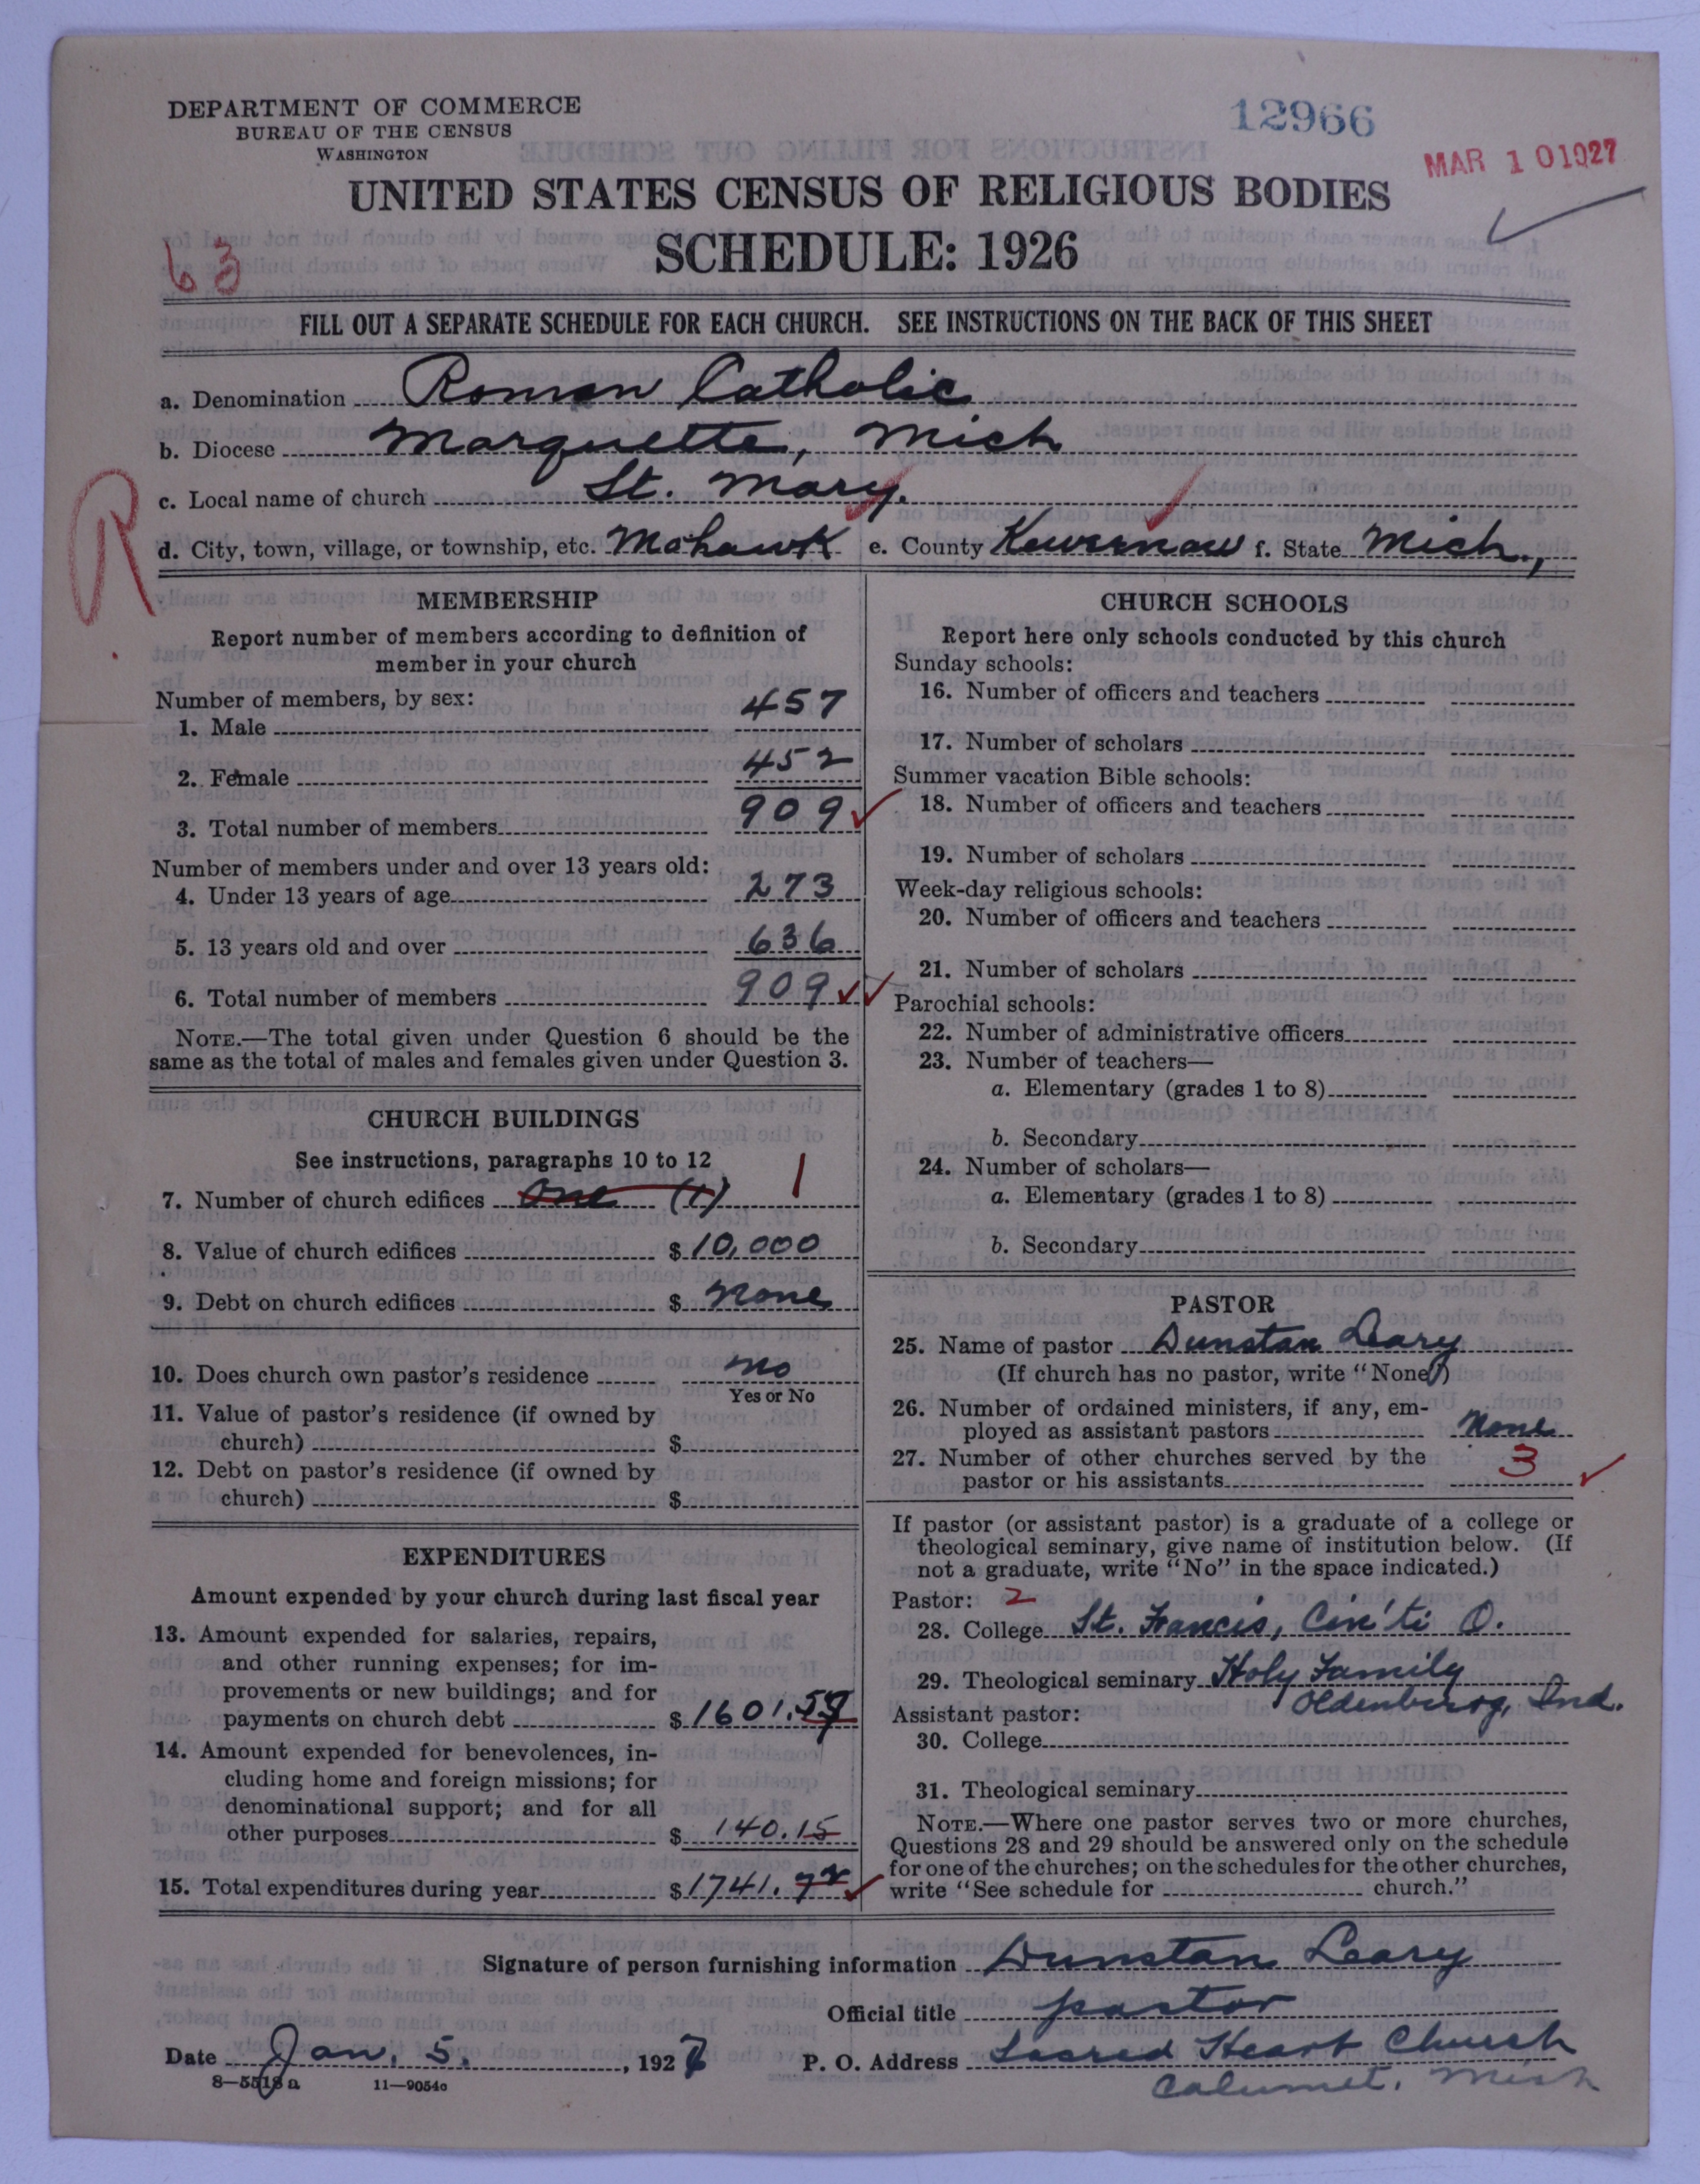 DEPARTMENT OF COMMERCE
BUREAU OF THE CENSUS
WASHINGTON
12966
MAR 10 1927
UNITED STATES CENSUS OF RELIGIOUS BODIES
SCHEDULE: 1926
63
FILL OUT A SEPARATE SCHEDULE FOR EACH CHURCH. SEE INSTRUCTIONS ON THE BACK OF THIS SHEET
a. Denomination Roman Catholic
b. Diocese Marquette, Mich
c. Local name of church St. Mary.
d. City, town, village, or township, etc. Mohawk e. County Kewernaw f. State Mich.,
R
MEMBERSHIP
Report number of members according to definition of
member in your church
Number of members, by sex:
1. Male 457
2. Female 452
3. Total number of members 909
Number of members under and over 13 years old:
4. Under 13 years of age 273
5. 13 years old and over 636
6. Total number of members 909
NOTE.—The total given under Question 6 should be the
same as the total of males and females given under Question 3.
CHURCH BUILDINGS
See instructions, paragraphs 10 to 12
7. Number of church edifices one (1) 1
8. Value of church edifices $10,000
9. Debt on church edifices $ None
10. Does church own pastor's residence no
Yes or No
11. Value of pastor's residence (if owned by
church) $
12. Debt on pastor's residence (if owned by
church) $
EXPENDITURES
Amount expended by your church during last fiscal year
13. Amount expended for salaries, repairs,
and other running expenses; for im-
provements or new buildings; and for
payments on church debt $1601.57
14. Amount expended for benevolences, in-
cluding home and foreign missions; for
denominational support; and for all
other purposes $ 140.15
15. Total expenditures during year $1741.72
CHURCH SCHOOLS
Report here only schools conducted by this church
Sunday schools:
16. Number of officers and teachers
17. Number of scholars
Summer vacation Bible schools:
18. Number of officers and teachers
19. Number of scholars
Week-day religious schools:
20. Number of officers and teachers
21. Number of scholars
Parochial schools:
22. Number of administrative officers
23. Number of teachers—
a. Elementary (grades 1 to 8)
b. Secondary
24. Number of scholars—
a. Elementary (grades 1 to 8)
b. Secondary
PASTOR
25. Name of pastor Dunstan Leary
(If church has no pastor, write "None")
26. Number of ordained ministers, if any, em-
ployed as assistant pastors None
27. Number of other churches served by the
pastor or his assistants 3
If pastor (or assistant pastor) is a graduate of a college or
theological seminary, give name of institution below. (If
not a graduate, write "No" in the space indicated.)
Pastor: 2
28. College St. Francis, Cin'ti O.
29. Theological seminary Holy Family
Oldenburg, Ind.
Assistant pastor:
30. College
31. Theological seminary
NOTE.—Where one pastor serves two or more churches,
Questions 28 and 29 should be answered only on the schedule
for one of the churches; on the schedules for the other churches,
write "See schedule for church."
Signature of person furnishing information Dunstan Leary
Official title pastor
Date Jan. 5. , 1927 P. O. Address Sacred Heart Church
Calumet, Mich
8—5518a 11—9054o